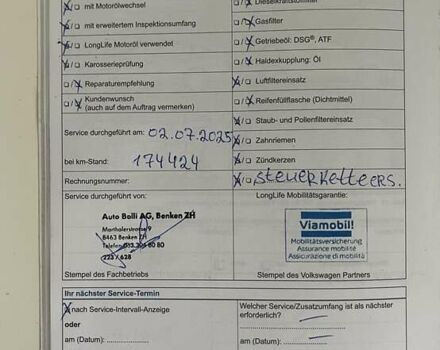 mit Motorölwechsel
mit erweitertem Inspektionsumfang
LongLife Motoröl verwendet
Karosserieprüfung
Reparaturempfehlung
Kundenwunsch
(auch auf dem Auftrag vermerken)
Service durchgeführt am: 02.07.2025
bei km-Stand: 174424
Rechnungsnummer:
Service durchgeführt von:
Auto Bolli AG, Benken ZH
Marthalerstrasse 9
8463 Benken ZH
Telefon
223/628
Stempel des Fachbetriebs
Gasfilter
Getriebeöl: DSG®, ATF
Haldexkupplung: Öl
Luftfiltereinsatz
Reifenfüllflasche (Dichtmittel)
Staub- und Pollenfiltereinsatz
Zahnriemen
Zündkerzen
steuerketteers.
LongLife Mobilitätsgarantie:
Viamobil!
Mobilitätsversicherung
Assurance mobilité
Assicurazione di mobilità
Stempel des Volkswagen Partners
Ihr nächster Service-Termin
nach Service-Intervall-Anzeige
oder
am (Datum):
Welcher Service/Zusatzumfang ist als nächster
erforderlich?
am (Datum):